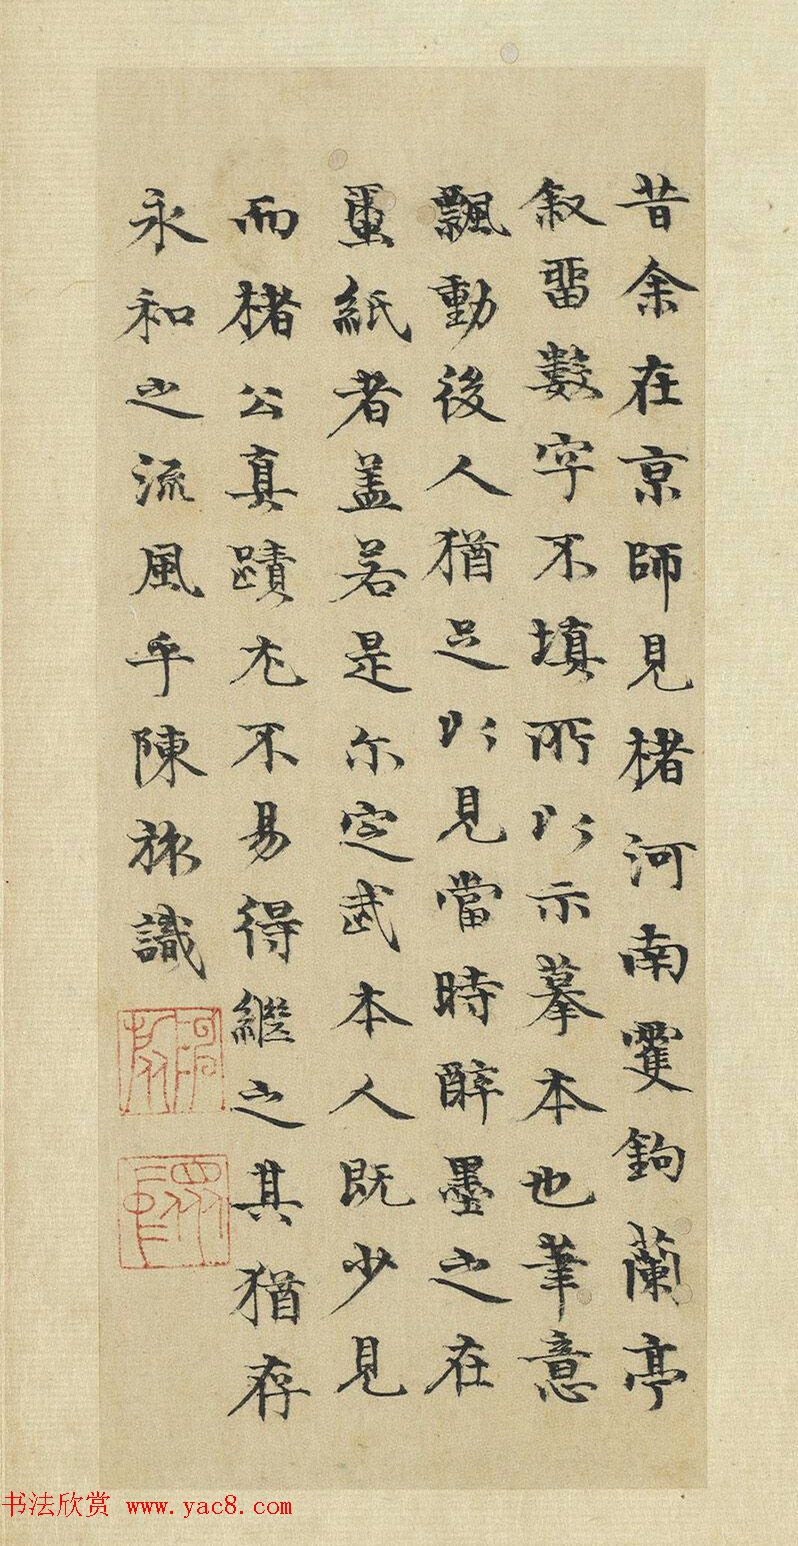 昔余在京師見楮河南雙鉤蘭亭
叙留數字不填所以示摹本也筆意
飄動後人猶足以見當時醉墨之在
蠒紙者盖若是尓定武本人既少見
而楮公真蹟尤不易得繼之其猶存
永和之流風乎陳旅識
陳旅
書法欣赏 www.yac8.com